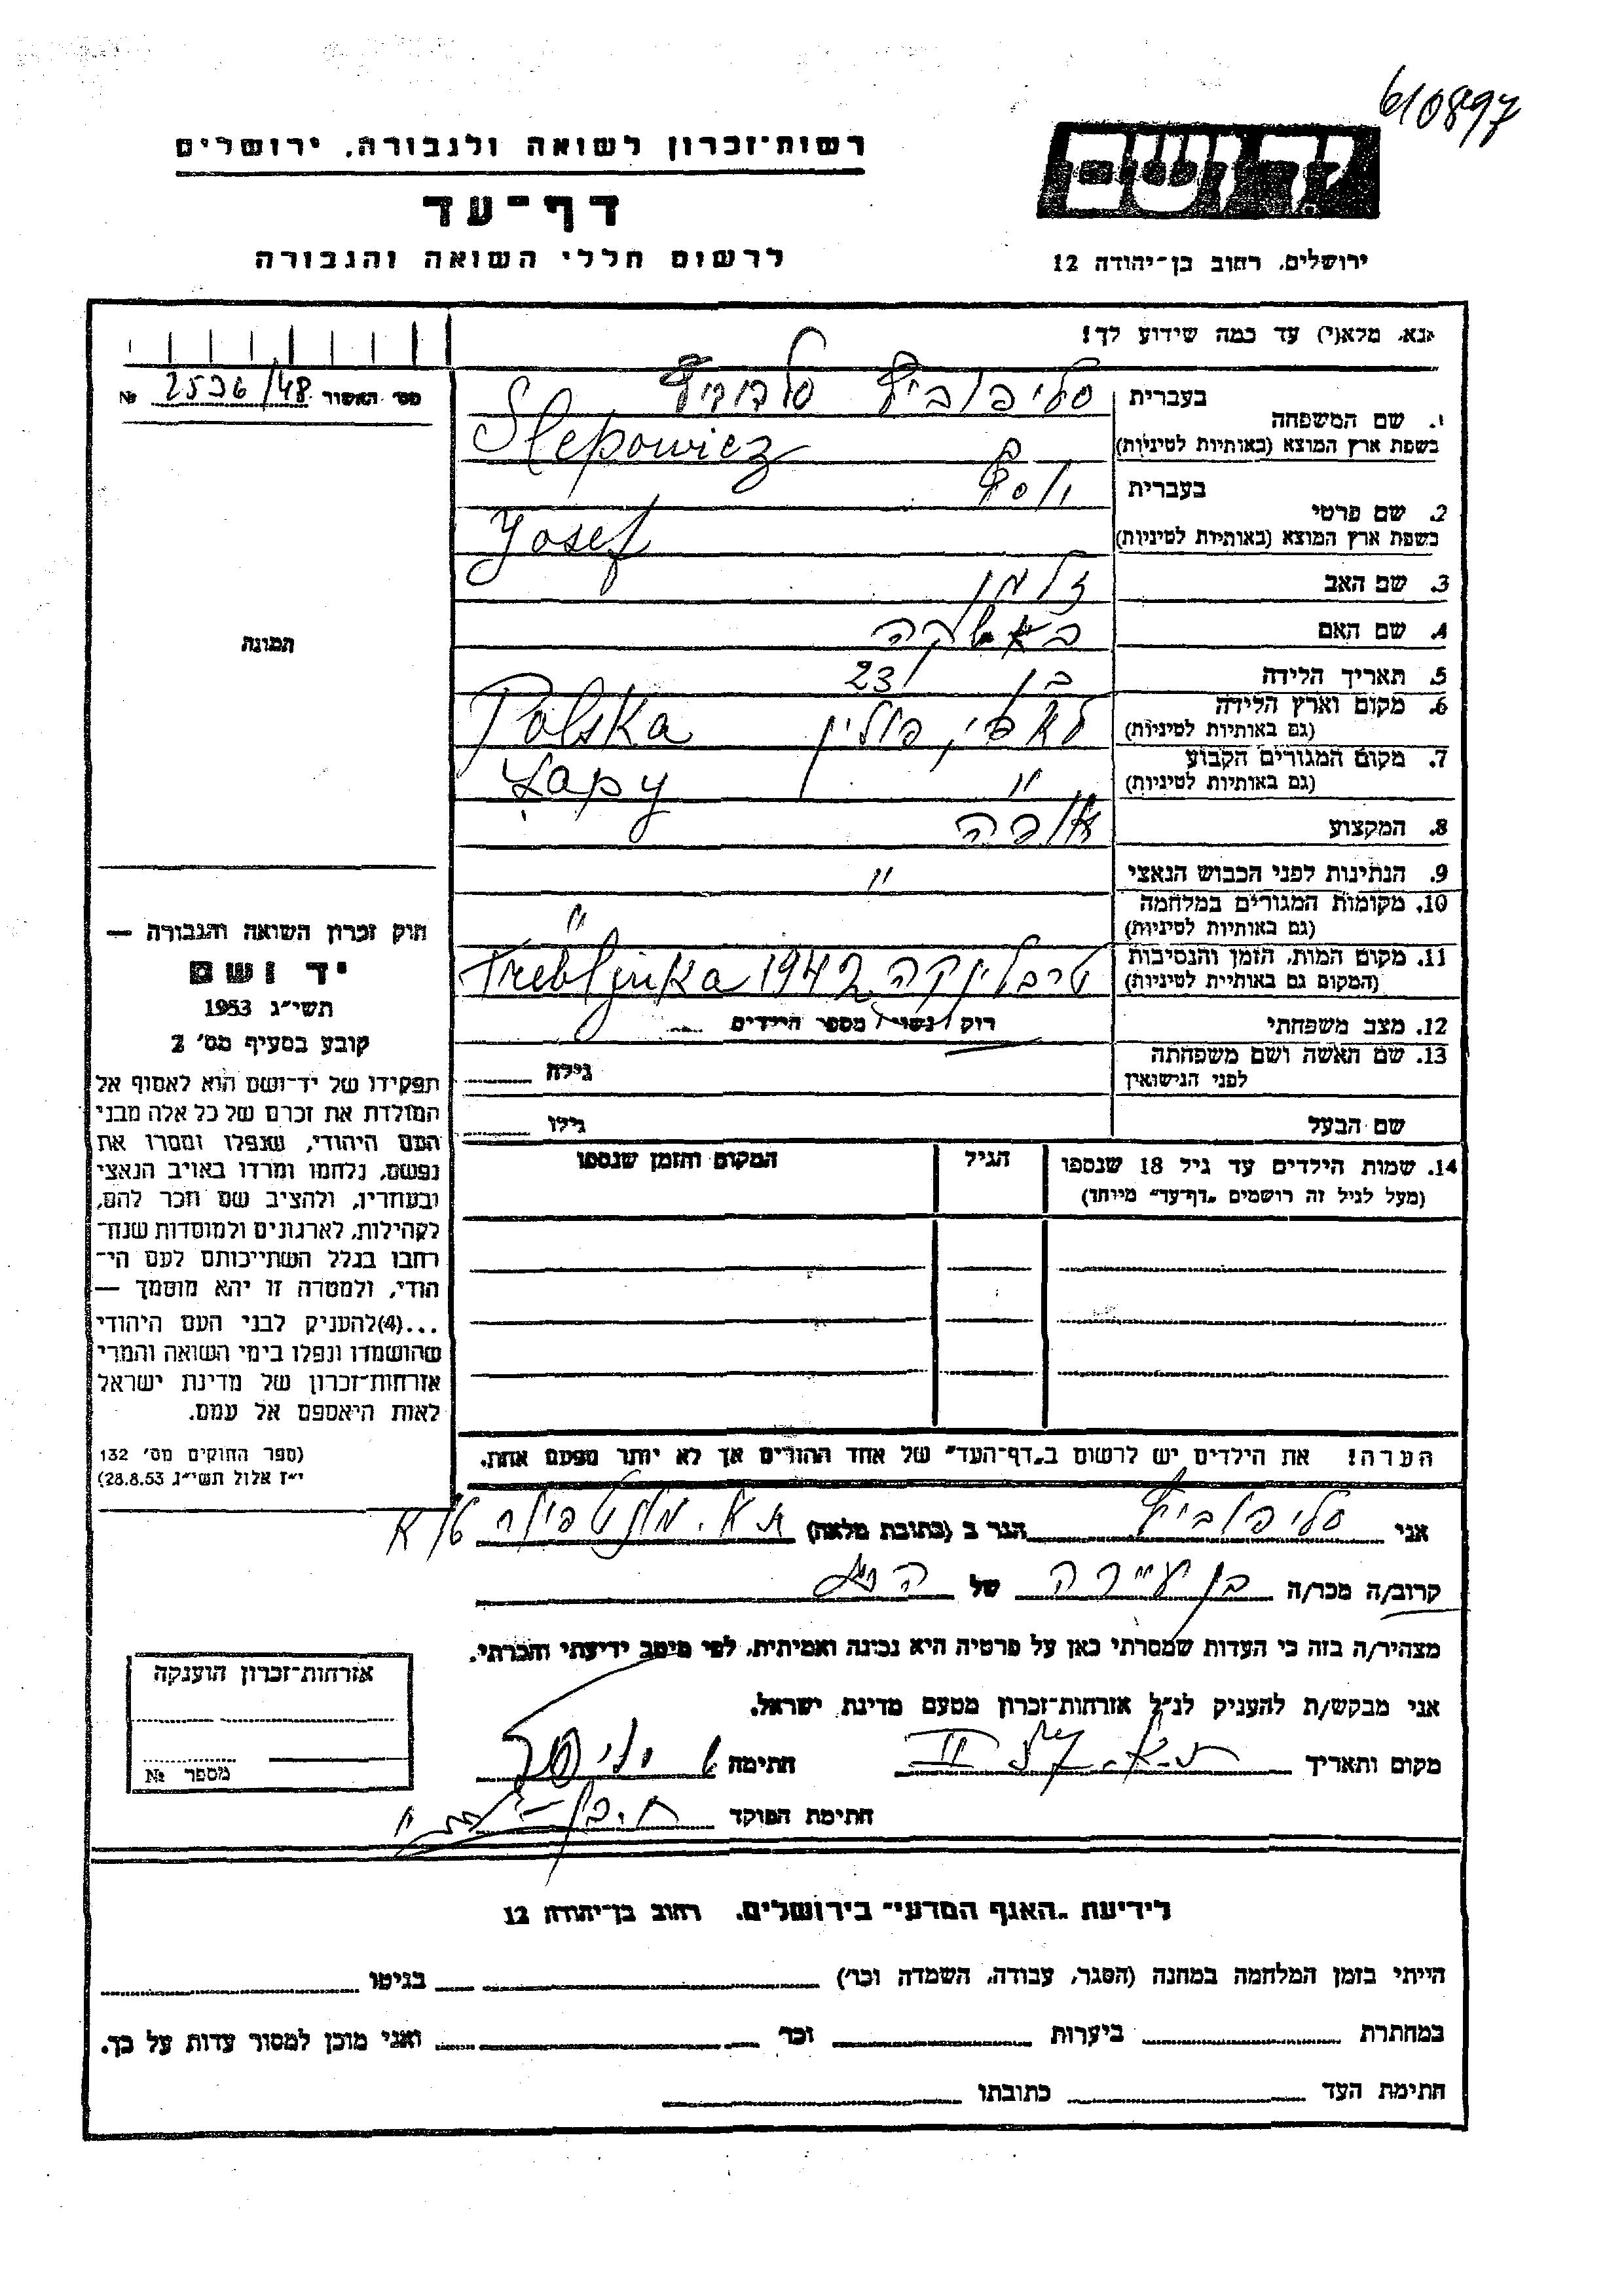 610897
יד ושם
רשות־זכרון לשואה ולגבורה, ירושלים
דף־עד
לרשום חללי השואה והגבורה
ירושלים, רחוב בן־יהודה 12
נא, מלא(י) עד כמה שידוע לך!
מס׳ האשור 2536/48 №
1. שם המשפחה
בעברית סליפוביץ
בשפת ארץ המוצא (באותיות לטיניות) Slepowicz
2. שם פרטי
בעברית יוסף
בשפת ארץ המוצא (באותיות לטיניות) Josef
3. שם האב זלמן
4. שם האם
5. תאריך הלידה בן 23
6. מקום וארץ הלידה
(גם באותיות לטיניות) לאפי, פולין Polska
7. מקום המגורים הקבוע
(גם באותיות לטיניות) " Łapy
8. המקצוע
9. הנתינות לפני הכבוש הנאצי "
10. מקומות המגורים במלחמה
(גם באותיות לטיניות) "
11. מקום המות, הזמן והנסיבות
(המקום גם באותיות לטיניות) טרבלינקה 1942 Trebljinka
12. מצב משפחתי רוק / נשוי / מספר הילדים
13. שם האשה ושם משפחתה
לפני הנישואין גילה
שם הבעל גילו
14. שמות הילדים עד גיל 18 שנספו
(מעל לגיל זה רושמים „דף־עד" מיוחד)
הגיל
המקום והזמן שנספו
הערה! את הילדים יש לרשום ב„דף־העד" של אחד ההורים אך לא יותר מפעם אחת.
תמונה
חוק זכרון השואה והגבורה —
יד ושם
תשי״ג 1953
קובע בסעיף מס׳ 2
תפקידו של יד־ושם הוא לאסוף אל
המולדת את זכרם של כל אלה מבני
העם היהודי, שנפלו ומסרו את
נפשם, נלחמו ומרדו באויב הנאצי
ובעוזריו, ולהציב שם וזכר להם,
לקהילות, לארגונים ולמוסדות שנח־
רחבו בגלל השתייכותם לעם הי־
הודי, ולמטרה זו יהא מוסמך —
...(4) להעניק לבני העם היהודי
שהושמדו ונפלו בימי השואה והמרי
אזרחות־זכרון של מדינת ישראל
לאות היאספם אל עמם.
(ספר החוקים מס׳ 132
י״ז אלול תשי״ג 28.8.53)
אני סליפוביץ הגר ב (כתובת מלאה) ת״א.
קרוב/ה מכר/ה בן עיירה של
מצהיר/ה בזה כי העדות שמסרתי כאן על פרטיה היא נכונה ואמיתית, לפי מיטב ידיעתי והכרתי.
אני מבקש/ת להעניק לנ״ל אזרחות־זכרון מטעם מדינת ישראל.
מקום ותאריך ת.א. חתימה
חתימת הפוקד
אזרחות־זכרון הוענקה
מספר №
לידיעת „האגף המדעי" בירושלים, רחוב בן־יהודה 12
הייתי בזמן המלחמה במחנה (הסגר, עבודה, השמדה וכו׳) בגיטו
במחתרת ביערות וכו׳ ואני מוכן למסור עדות על כך.
חתימת העד כתובתו